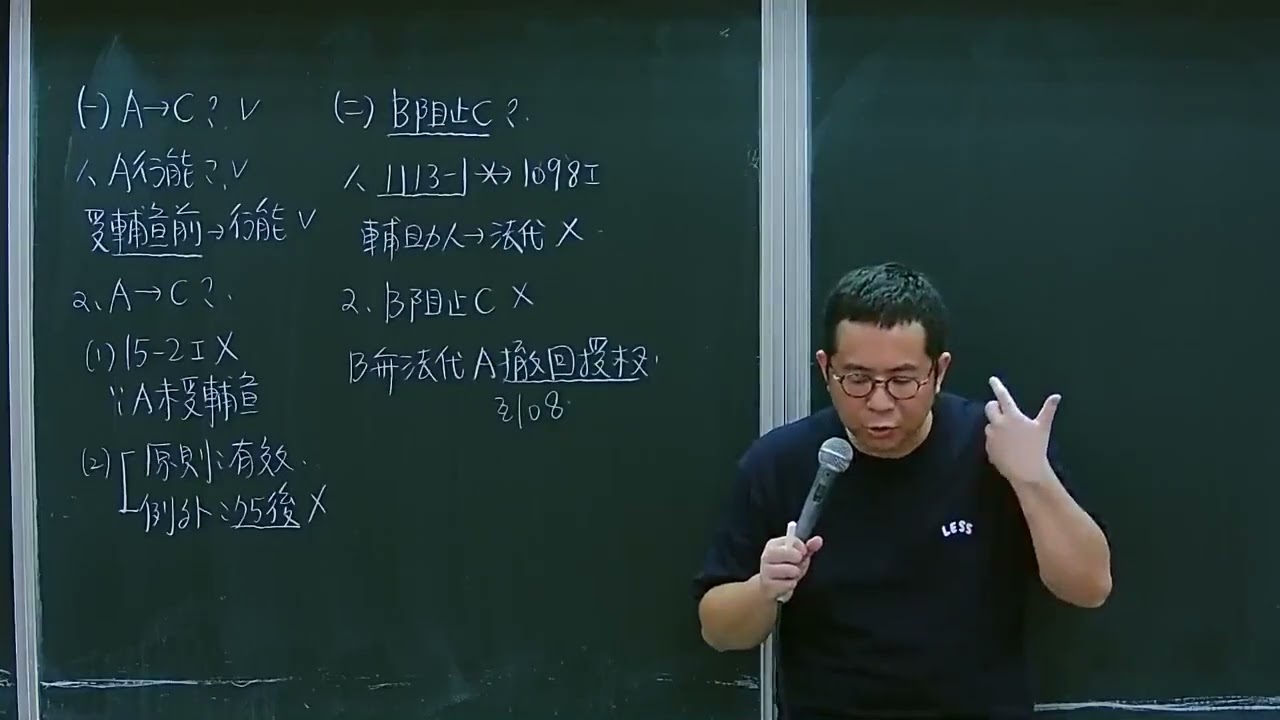 (一) A→C？ˇ
1、A行能？ˇ
受輔宣前→行能ˇ
2、A→C？
(1) 15-2Ⅰ X
∵A未受輔宣
(2) 原則：有效
例外：75後 X
(二) B阻止C？
1、1113-1 1098Ⅰ
輔助人→法代 X
2、B阻止C X
B非法代 A撤回授权
108
LESS